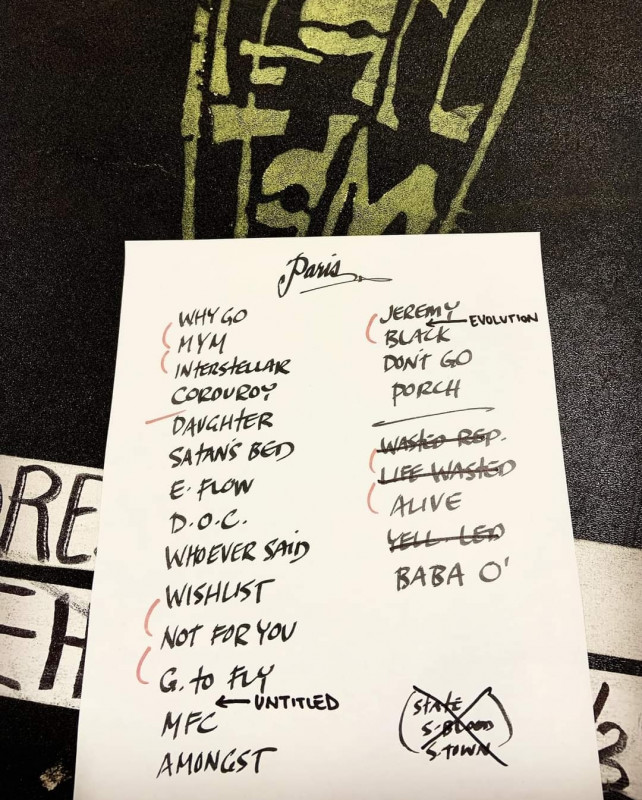 Paris
WHY GO
MYM
INTERSTELLAR
CORDUROY
DAUGHTER
SATAN'S BED
E. FLOW
D.O.C.
WHOEVER SAID
WISHLIST
NOT FOR YOU
G. to FLY
← UNTITLED
MFC
AMONGST
JEREMY
← EVOLUTION
BLACK
DON'T GO
PORCH
WASTED REP.
LIFE WASTED
ALIVE
YELL. LED
BABA O'
STATE
S. BLOOD
S. TOWN